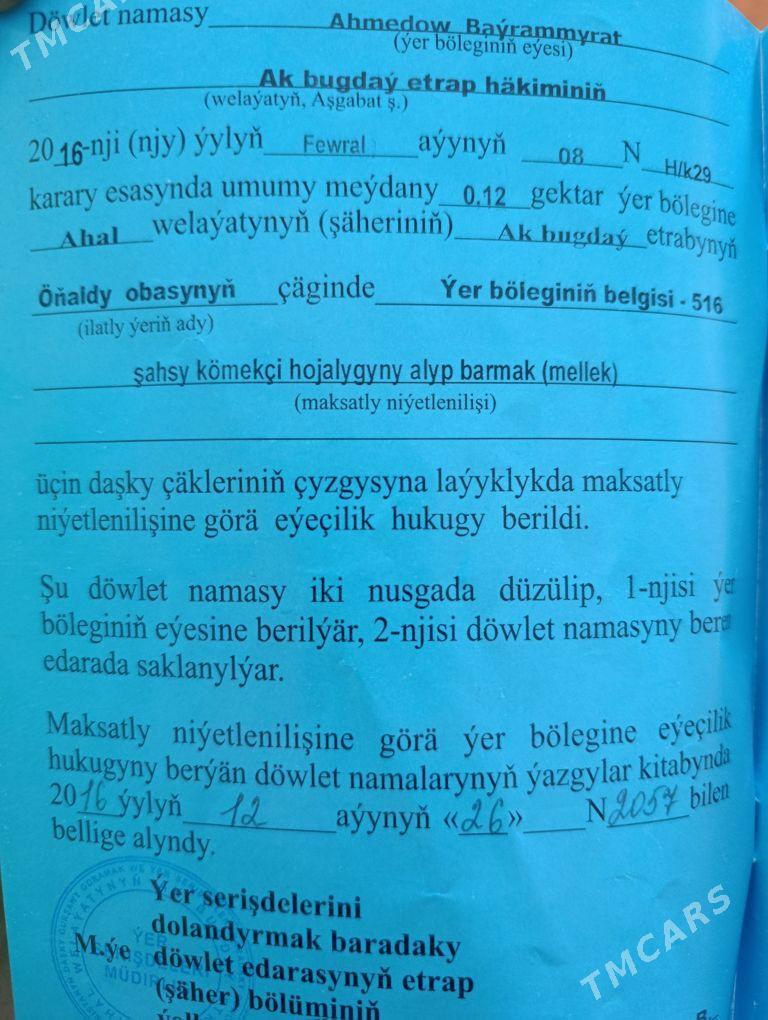 TMCARS
Döwlet namasy Ahmedow Baýrammyrat
(ýer böleginiň eýesi)
Ak bugdaý etrap häkiminiň
(welaýatyň, Aşgabat ş.)
2016-nji (njy) ýylyň Fewral aýynyň 08 N H/k29
karary esasynda umumy meýdany 0,12 gektar ýer bölegine
Ahal welaýatynyň (şäheriniň) Ak bugdaý etrabynyň
Öňaldy obasynyň çäginde Ýer böleginiň belgisi - 516
(ilatly ýeriň ady)
şahsy kömekçi hojalygyny alyp barmak (mellek)
(maksatly niýetlenilişi)
üçin daşky çäkleriniň çyzgysyna laýyklykda maksatly
niýetlenilişine görä eýeçilik hukugy berildi.
Şu döwlet namasy iki nusgada düzülip, 1-njisi ýer
böleginiň eýesine berilýär, 2-njisi döwlet namasyny beren
edarada saklanylýar.
Maksatly niýetlenilişine görä ýer bölegine eýeçilik
hukugyny berýän döwlet namalarynyň ýazgylar kitabynda
2016 ýylyň 12 aýynyň «26» N 2057 bilen
bellige alyndy.
Ýer serişdelerini
dolandyrmak baradaky
M.ýe döwlet edarasynyň etrap
(şäher) bölüminiň
TMCARS